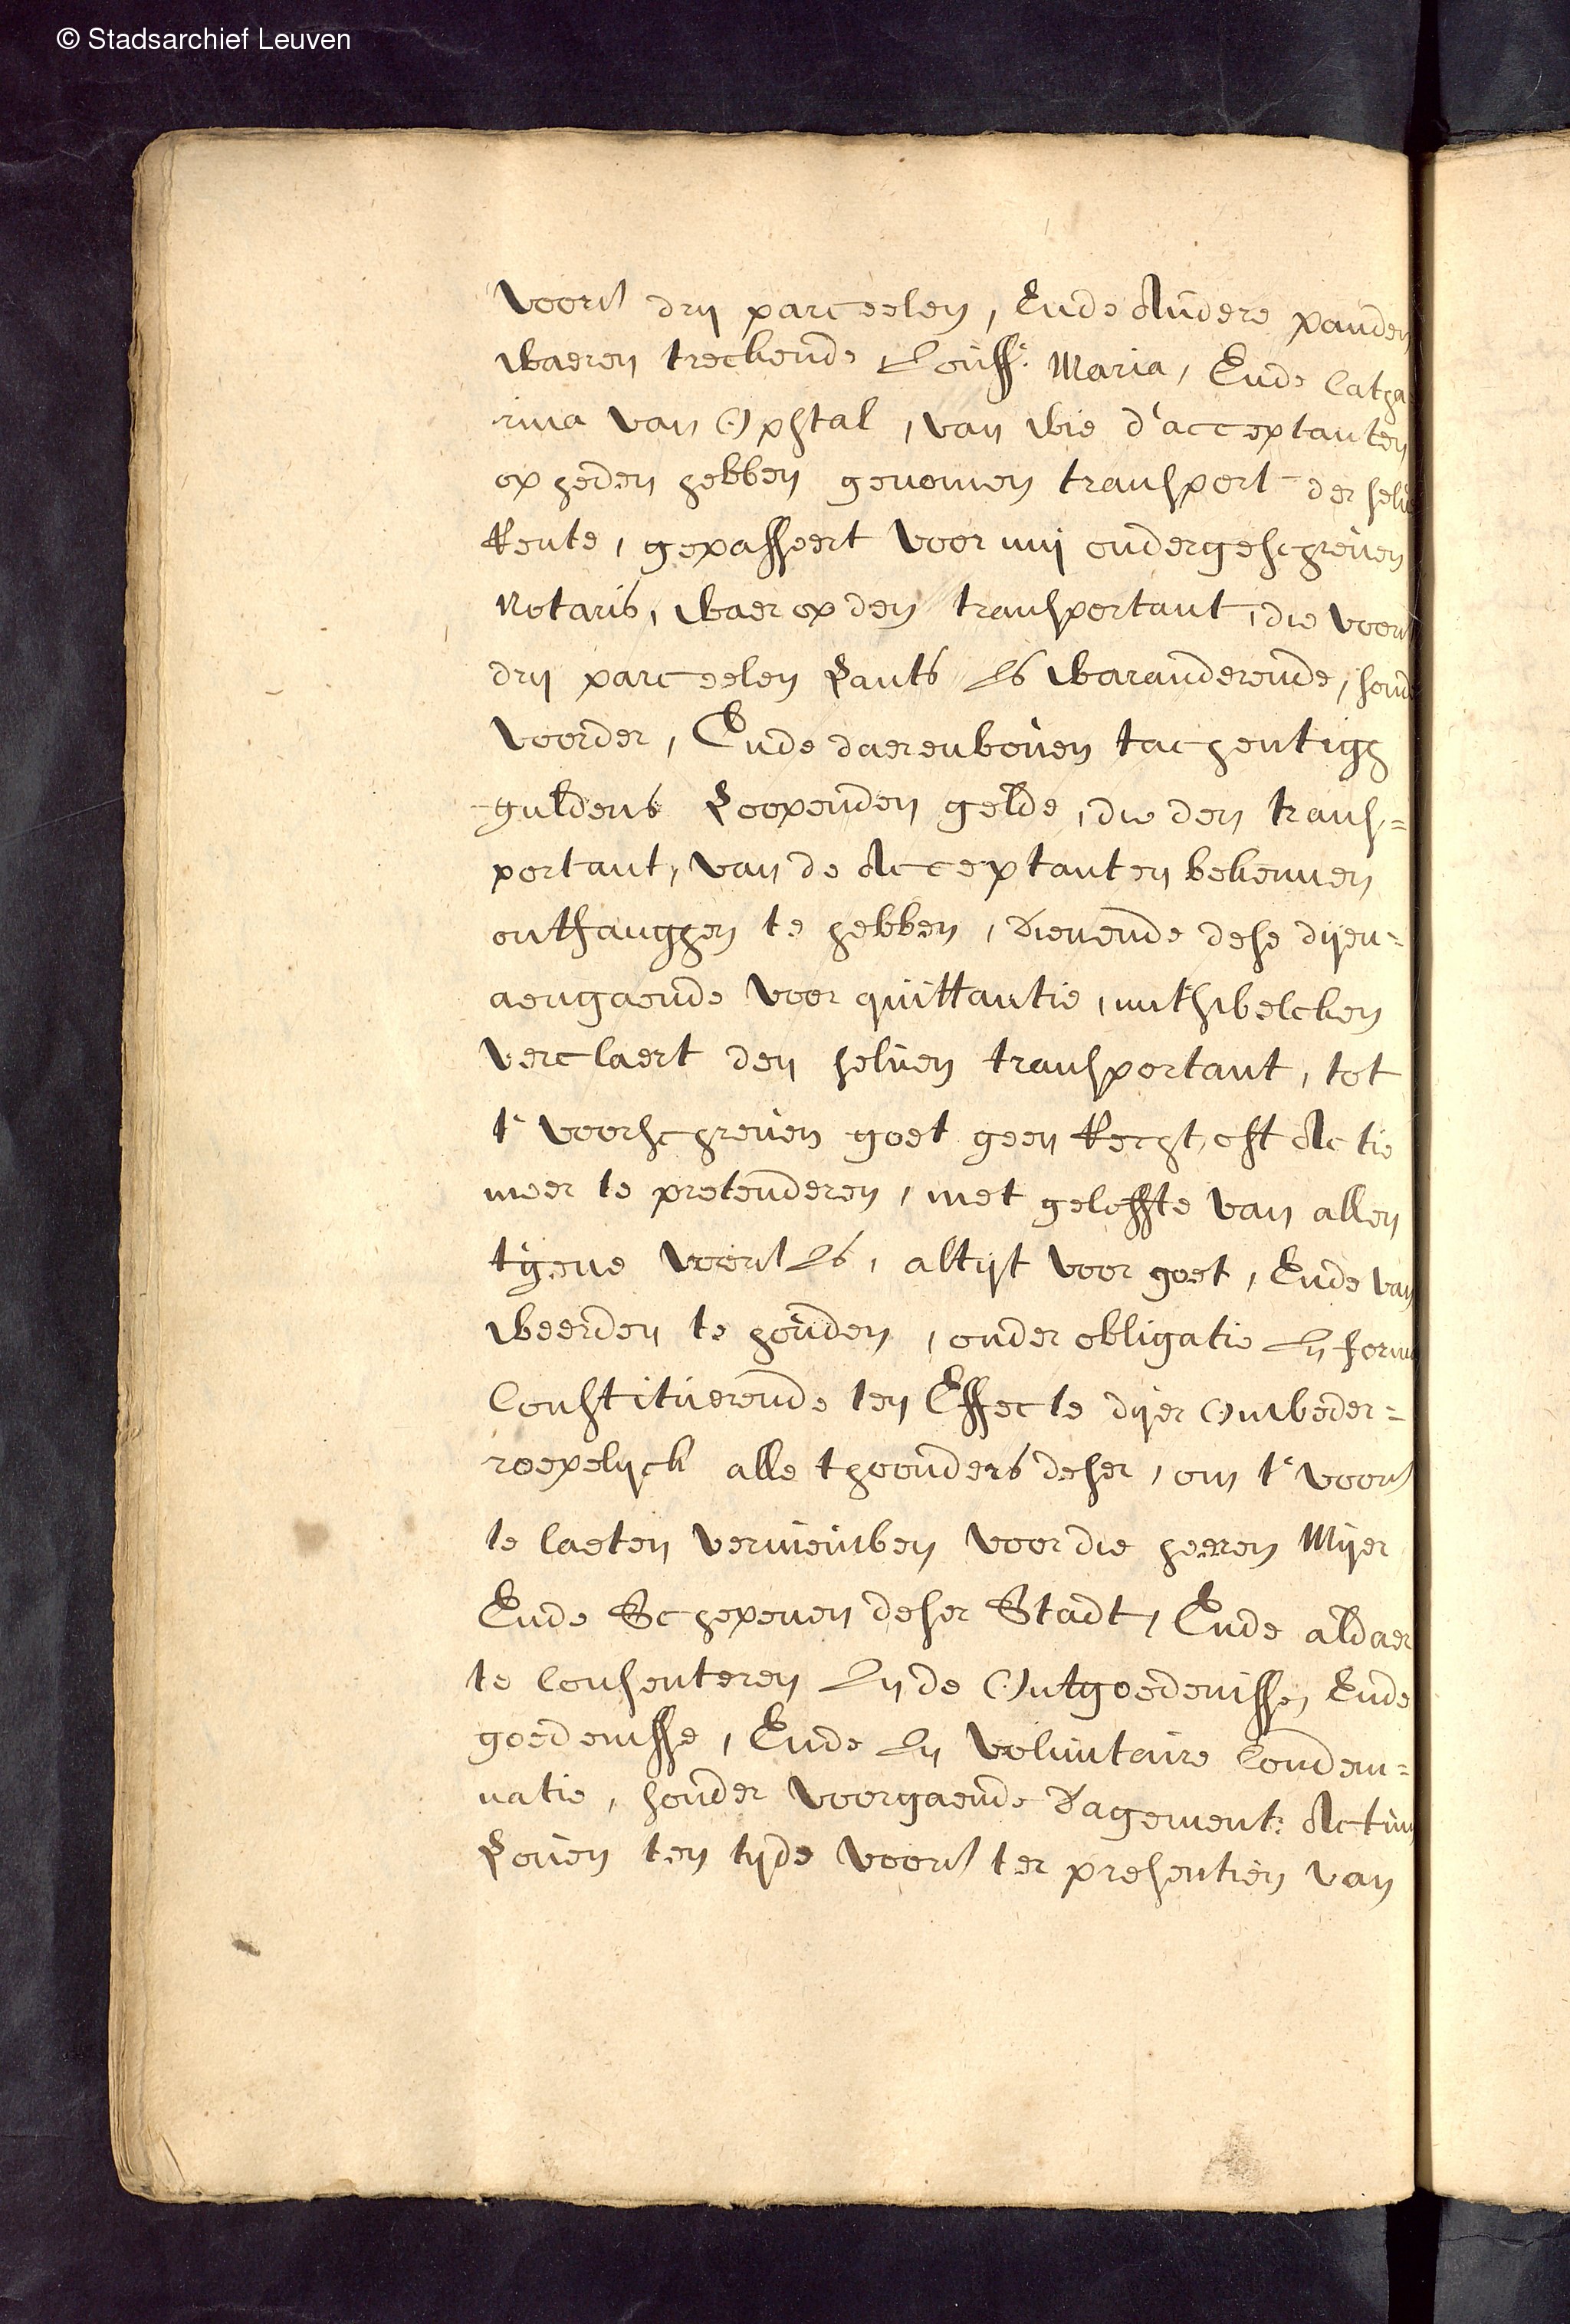 © Stadsarchief Leuven
voors drij parceelen, Ende Andere panden
waeren treckende Jouff: Maria, Ende Catha
rina van Opstal, van wie d'acceptanten
op heden hebben genomen transport der selve
Rente, gepasseert voor mij ondergeschreven
Notaris, waer op den transportant, die voors
drij parceelen Lants Is waranderende, sond
voorder, Ende daerenboven tachentigh
guldens Loopenden gelde, die den trans=
portant, van de Acceptanten bekennen
ontfanghen te hebben, dienende dese dijen=
aengaende voor quittantie, mits welcken
verclaert den selven transportant, tot
t' voorschreven goet geen Recht, oft Actie
meer te pretenderen, met geloffte van allen
tgene voors Is, altijt voor goet, Ende van
weerden te houden, onder obligatie In form
Constituerende ten Effecte dijer Onweder=
roepelyck alle thoonders deser, om t' voors
te laeten vernieuwen voor die heeren Mijer
Ende Schepenen deser Stadt, Ende aldaer
te Consenteren In de Ontgoedenissen Ende
goedenisse, Ende In voluntaire Condem=
natie, sonder voorgaende dagement: Actum
Loven ten tyde voors ter presentien van